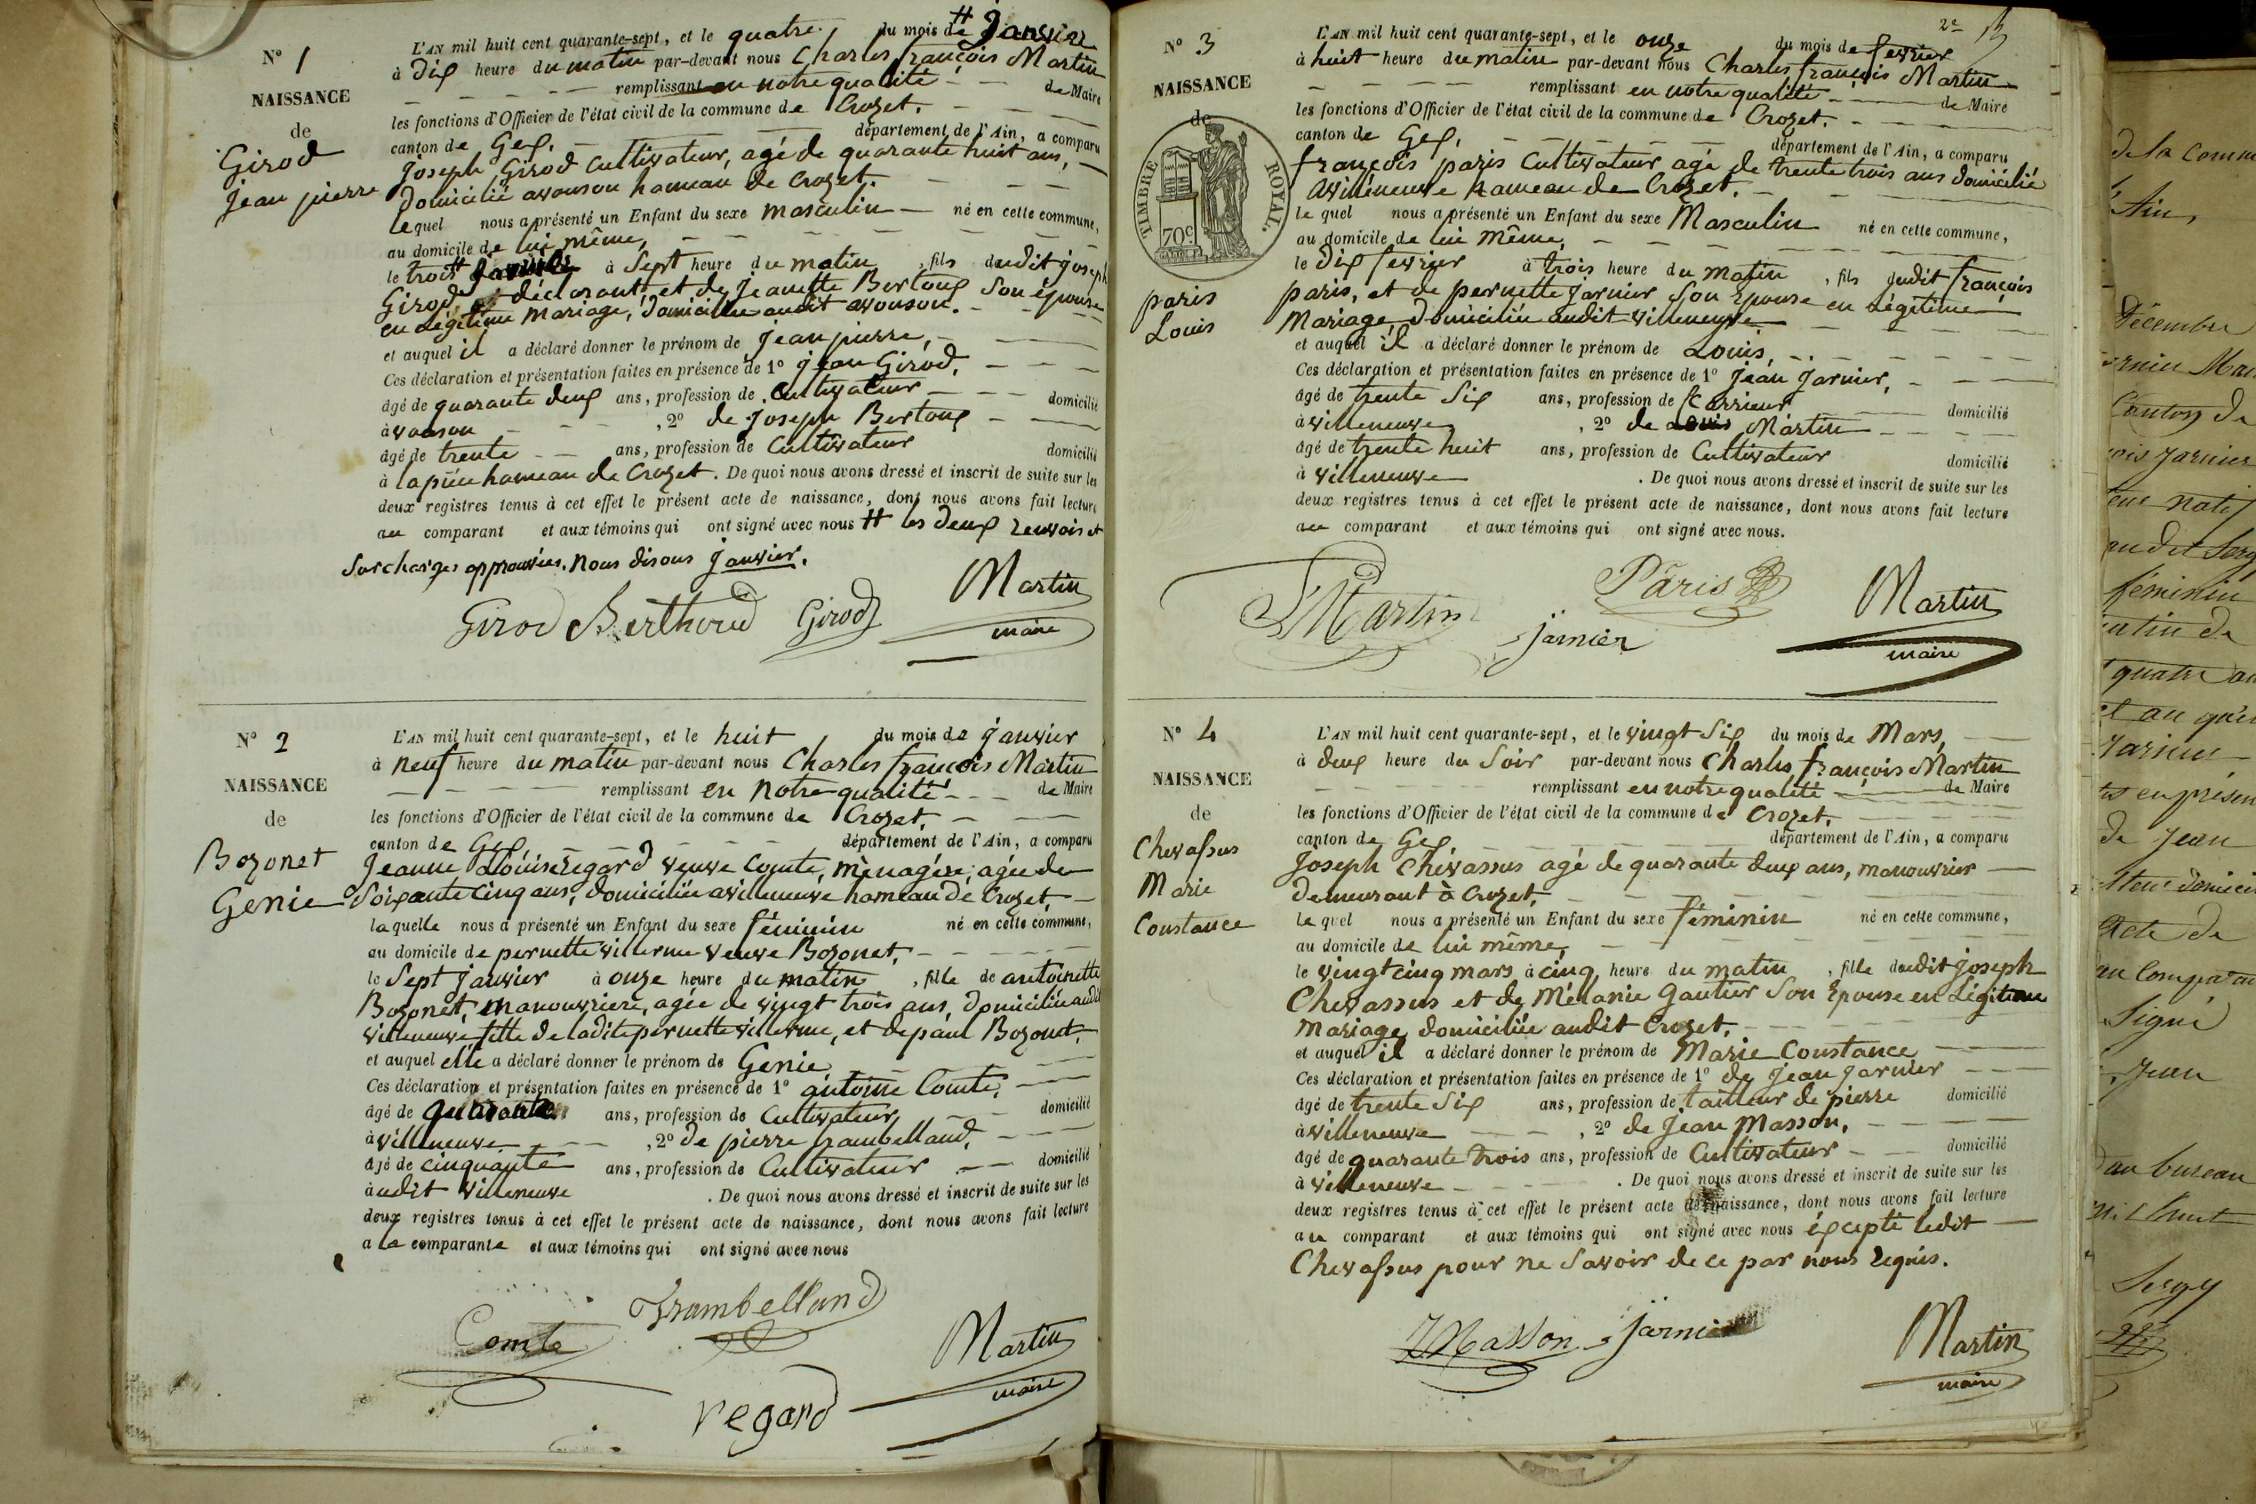 N° 1
NAISSANCE
de
Girod
jean pierre
L'AN mil huit cent quarante-sept, et le quatre du mois de # Janvier
à dix heure du matin par-devant nous Charles françois Martin
remplissant en notre qualité de Maire
les fonctions d'Officier de l'état civil de la commune de Crozet.
canton de Gex. département de l'Ain, a comparu
Joseph Girod Cultivateur, agé de quarante huit ans,
domicilié avouson hameau de Crozet.
lequel nous a présenté un Enfant du sexe masculin né en cette commune,
au domicile de lui même,
le trois # janvier à Sept heure du matin, fils dudit joseph
Girod, déclarant, et de jeanette Bertoux Son épouse
en légitime Mariage, domiciliée audit avouson.
et auquel il a déclaré donner le prénom de jean pierre,
Ces déclaration et présentation faites en présence de 1° jean Girod,
âgé de quarante deux ans, profession de Cultivateur domicilié
à vouson, 2° de Joseph Bertoux
âgé de trente ans, profession de Cultivateur domicilié
à lapiée hameau de Crozet. De quoi nous avons dressé et inscrit de suite sur les
deux registres tenus à cet effet le présent acte de naissance, dont nous avons fait lecture
au comparant et aux témoins qui ont signé avec nous # les deux renvois et
Surcharges approuvées. nous disons janvier.
Girod Berthoud Girod Martin
maire
N° 2
NAISSANCE
de
Bozonet
Genie
L'AN mil huit cent quarante-sept, et le huit du mois de janvier
à neuf heure du matin par-devant nous Charles françois Martin
remplissant en notre qualité de Maire
les fonctions d'Officier de l'état civil de la commune de Crozet.
canton de Gex, département de l'Ain, a comparu
Jeanne Louise regard veuve Comte, ménagère, agée de
Soixante Cinq ans, domiciliée avilleneuve hameau de Crozet,
laquelle nous a présenté un Enfant du sexe féminin né en cette commune,
au domicile de pernette villerme veuve Bozonet,
le Sept janvier à onze heure du matin, fille de antoinette
Bozonet, manouvriere, agée de vingt trois ans, domiciliée audit
villeneuve fille de ladite pernette villerme, et de paul Bozonet,
et auquel elle a déclaré donner le prénom de Genie
Ces déclaration et présentation faites en présence de 1° antoine Comte,
âgé de quarante ans, profession de Cultivateur domicilié
à villeneuve, 2° de pierre frambelland,
âgé de cinquante ans, profession de Cultivateur domicilié
audit villeneuve. De quoi nous avons dressé et inscrit de suite sur les
deux registres tenus à cet effet le présent acte de naissance, dont nous avons fait lecture
a la comparante et aux témoins qui ont signé avec nous
Frambelland
Comte Martin
maire
regard
2e
N° 3
NAISSANCE
de
TIMBRE ROYAL.
70c
paris
Louis
L'AN mil huit cent quarante-sept, et le onze du mois de fevrier
à huit heure du matin par-devant nous Charles françois Martin
remplissant en notre qualité de Maire
les fonctions d'Officier de l'état civil de la commune de Crozet.
canton de Gex, département de l'Ain, a comparu
françois paris Cultivateur agé de trente trois ans domicilié
avilleneuve hameau de Crozet.
le quel nous a présenté un Enfant du sexe Masculin né en cette commune,
au domicile de lui même,
le dix fevrier à trois heure du matin, fils dudit françois
paris, et de pernette jarnier Son Epouse en Légitime
Mariage, domiciliée audit villeneuve
et auquel il a déclaré donner le prénom de Louis,
Ces déclaration et présentation faites en présence de 1° Jean Jarnier,
âgé de trente Six ans, profession de Carrieur domicilié
à villeneuve, 2° de Louis Martin
âgé de trente huit ans, profession de Cultivateur domicilié
à villeneuve. De quoi nous avons dressé et inscrit de suite sur les
deux registres tenus à cet effet le présent acte de naissance, dont nous avons fait lecture
au comparant et aux témoins qui ont signé avec nous.
Martin Pâris jarnier Martin
maire
N° 4
NAISSANCE
de
Chevassus
Marie
Constance
L'AN mil huit cent quarante-sept, et le vingt Six du mois de Mars,
à deux heure du Soir par-devant nous Charles françois Martin
remplissant en notre qualité de Maire
les fonctions d'Officier de l'état civil de la commune de Crozet.
canton de Gex département de l'Ain, a comparu
Joseph Chevassus agé de quarante deux ans, manouvrier
demeurant à Crozet,
le quel nous a présenté un Enfant du sexe féminin né en cette commune,
au domicile de lui même,
le vingt cinq mars à cinq heure du matin, fille dudit joseph
Chevassus et de Mélanie Gautier Son Epouse en Légitime
Mariage, domiciliée audit Crozet.
et auquel il a déclaré donner le prénom de Marie Constance
Ces déclaration et présentation faites en présence de 1° de Jean Jarnier
âgé de trente Six ans, profession de tailleur de pierre domicilié
à villeneuve, 2° de Jean Masson,
âgé de quarante trois ans, profession de Cultivateur domicilié
à villeneuve. De quoi nous avons dressé et inscrit de suite sur les
deux registres tenus à cet effet le présent acte de naissance, dont nous avons fait lecture
au comparant et aux témoins qui ont signé avec nous éxcepté ledit
Chevassus pour ne Savoir de ce par nous requis.
JMasson jarnier Martin
maire
de la Commu
Ain,
Décembre
Canton de
natif
féminin
quatre
en présen
de Jean
Acte de
au Compara
Signé
Jean
au bureau
Sergy